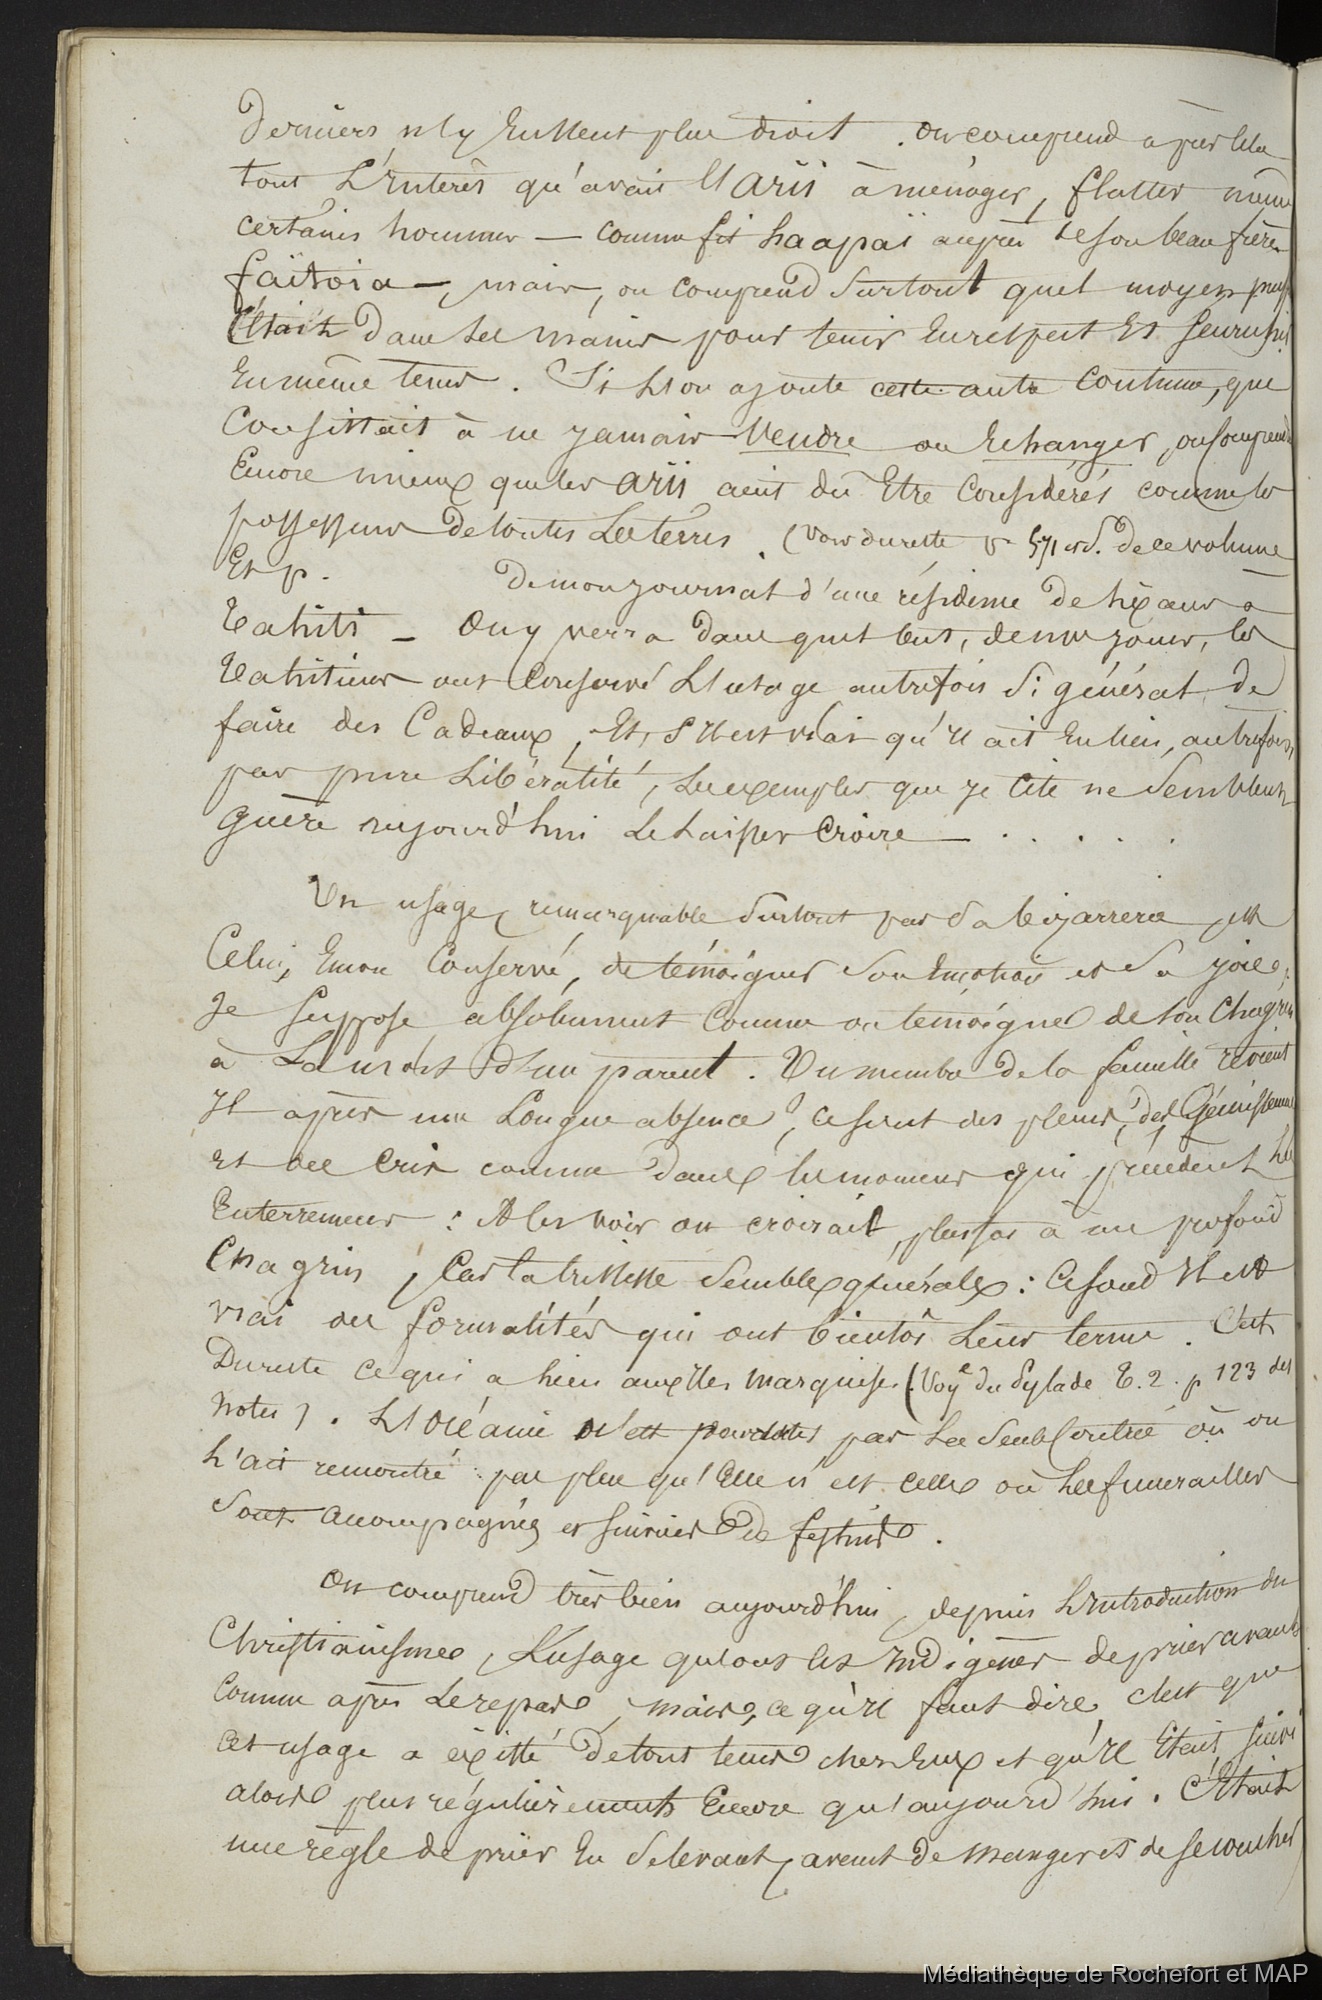 derniers n'y eussent plus droit. On comprend après cela
tout l'intérêt qu'avait l'arii à ménager, flatter même
certains hommes — comme fit haapaï auprès de son beau frère
faïtoia —, mais, on comprend surtout quel moyen puis
c'était dans ses mains pour tenir en respect et
en même tems. Si l'on ajoute cette autre coutume, que
consistait à ne jamais vendre ou échanger, on comprendra
encore mieux que les arii aient dû être considérés comme les
possesseurs de toutes les terres. (voir du reste p 571 et s. de ce volume
et p. de mon journal d'une résidence de six ans à
Tahiti — On y verra dans quel but, de nos jours, les
Tahitiens ont conservé l'usage autrefois si général de
faire des cadeaux, et, s'il est vrai qu'il ait eu lieu, autrefois,
par pure libéralité, les exemples que je cite ne semblent
guère aujourd'hui le laisser croire — . . . . .
Un usage, remarquable surtout par sa bizarrerie, est
celui, encore conservé, de témoigner son émotion et sa joie,
je suppose absolument comme on témoigne de son chagrin
à la mort d'un parent. Un membre de la famille revient
il après une longue absence ?, ce sont des pleurs, des gémissemens
et des cris comme dans les momens qui précèdent les
enterremens : A les voir on croirait, plustot à un profond
chagrin, car la tristesse semble générale : ce sont il est
vrai des formalités qui ont bientôt leur terme. C'est
du reste ce qui a lieu aux Iles marquises (Voye du Pylade T. 2. p 123 des
notes). L'Océanie n'est pas la seule contrée où on
l'ait remontré pas plus qu'elle n'est celle où les funérailles
sont accompagnées et suivies de festins.
On comprend très bien aujourd'hui, depuis l'introduction du
Christianisme, l'usage qu'ont les indigènes de prier avant
comme après le repas, mais, ce qu'il faut dire, c'est que
cet usage a existé de tout tems chez eux et qu'il était suivi
alors plus régulièrement encore qu'aujourd'hui. C'était
une règle de prier en se levant, avant de manger et de se coucher
Médiathèque de Rochefort et MAP